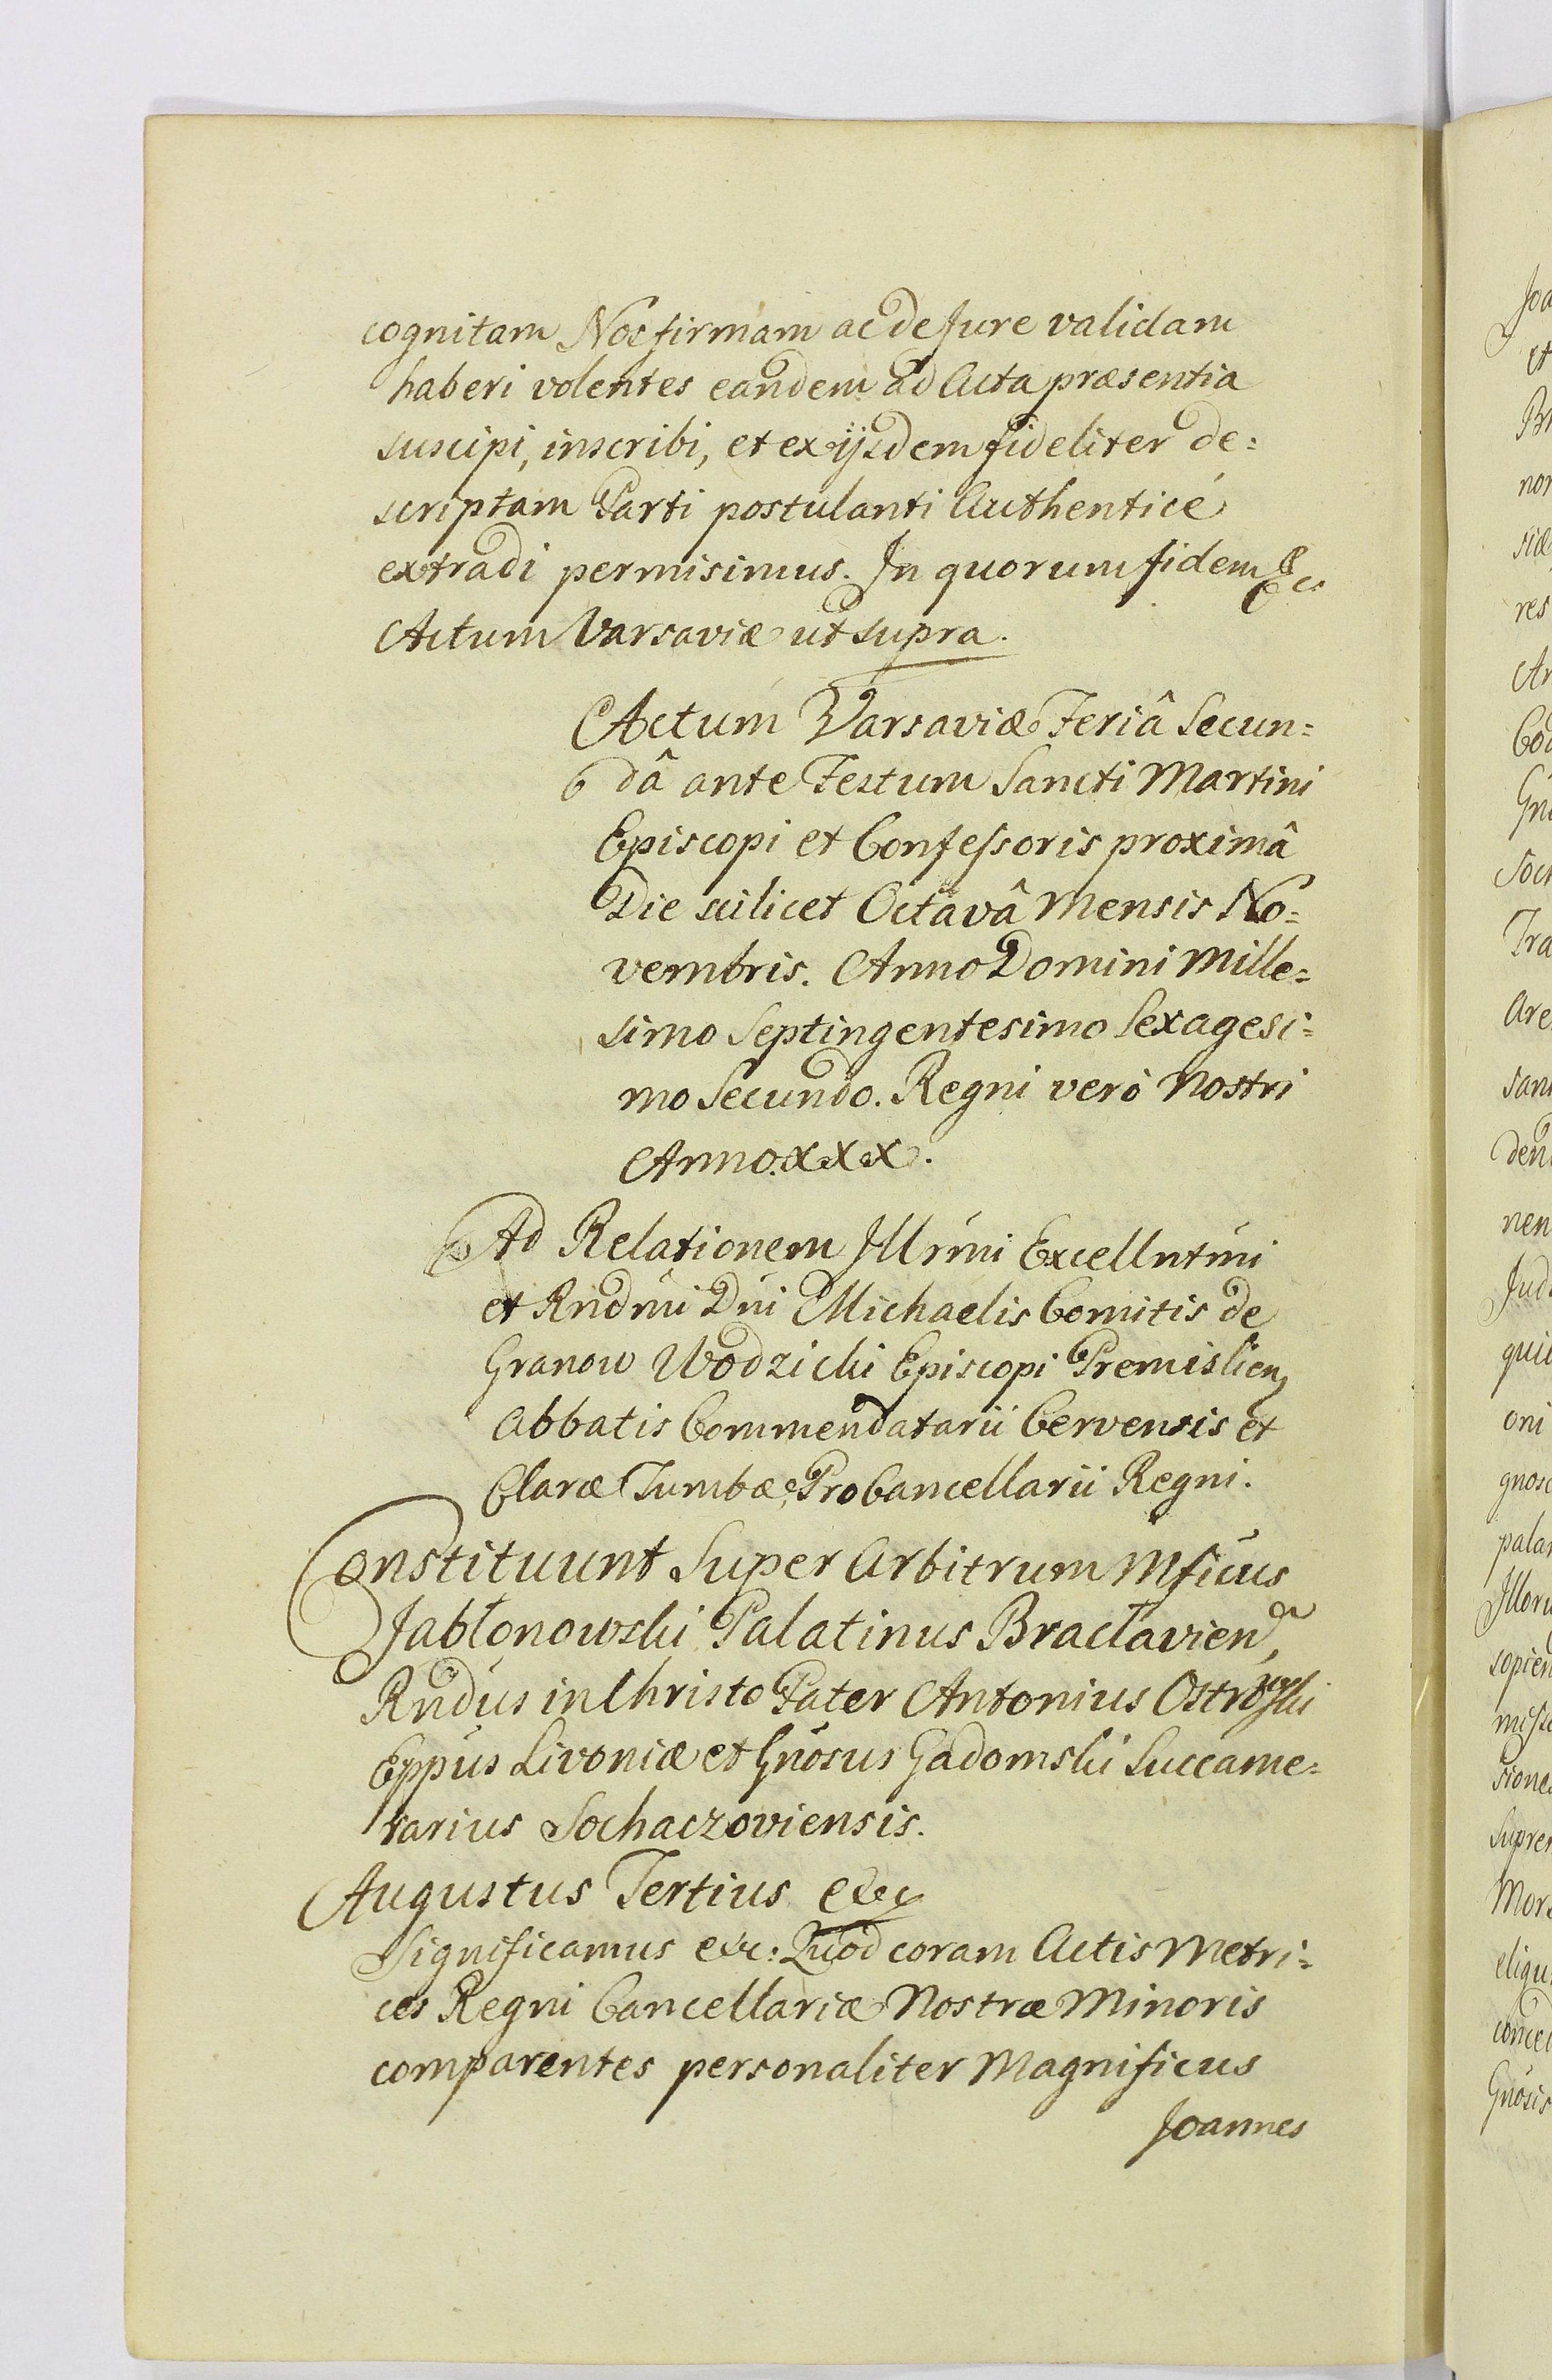 cognitam Nos firmam ac de Jure validam
haberi volentes eandem ad Acta præsentia
suscipi, inscribi, et ex ijsdem fideliter de=
scriptam Parti postulanti Authenticé
extradi permisimus. In quorum fidem &c
Actum Varsaviæ ut supra.
Actum Varsaviæ Feriâ Secun=
dâ ante Festum Sancti Martini
Episcopi et Confessoris proximâ
Die scilicet Octavâ Mensis No=
vembris. Anno Domini Mille=
simo Septingentesimo Sexagesi=
mo Secundo. Regni verò Nostri
Anno. XXX.
Ad Relationem Illrmi Excellntmi
et Rndmi Dni Michaelis Comitis de
Granow Wodzicki Episcopi Premislien,
Abbatis Commendatarii Cervensis et
Claræ Tumbæ, ProCancellarii Regni.
Constituunt Super Arbitrum Mficus
Jabłonowski Palatinus Bracłavien,
Rndus in Christo Pater Antonius Ostrowski
Eppus Livoniæ et Gnosus Gadomski Succame=
rarius Sochaczoviensis.
Augustus Tertius &c
Significamus &c: Quod coram Actis Metri=
ces Regni Cancellariæ Nostræ Minoris
comparentes personaliter Magnificus
Joannes
Joa
et
Br
nor
siæ
res
An
Coa
Gn
Soch
Tra
Are
san
den
nen
Jud
qui
oni
gnosc
palam
Illoru
sopien
misse
sione
Suprem
More
eligu
conced
Gnosis